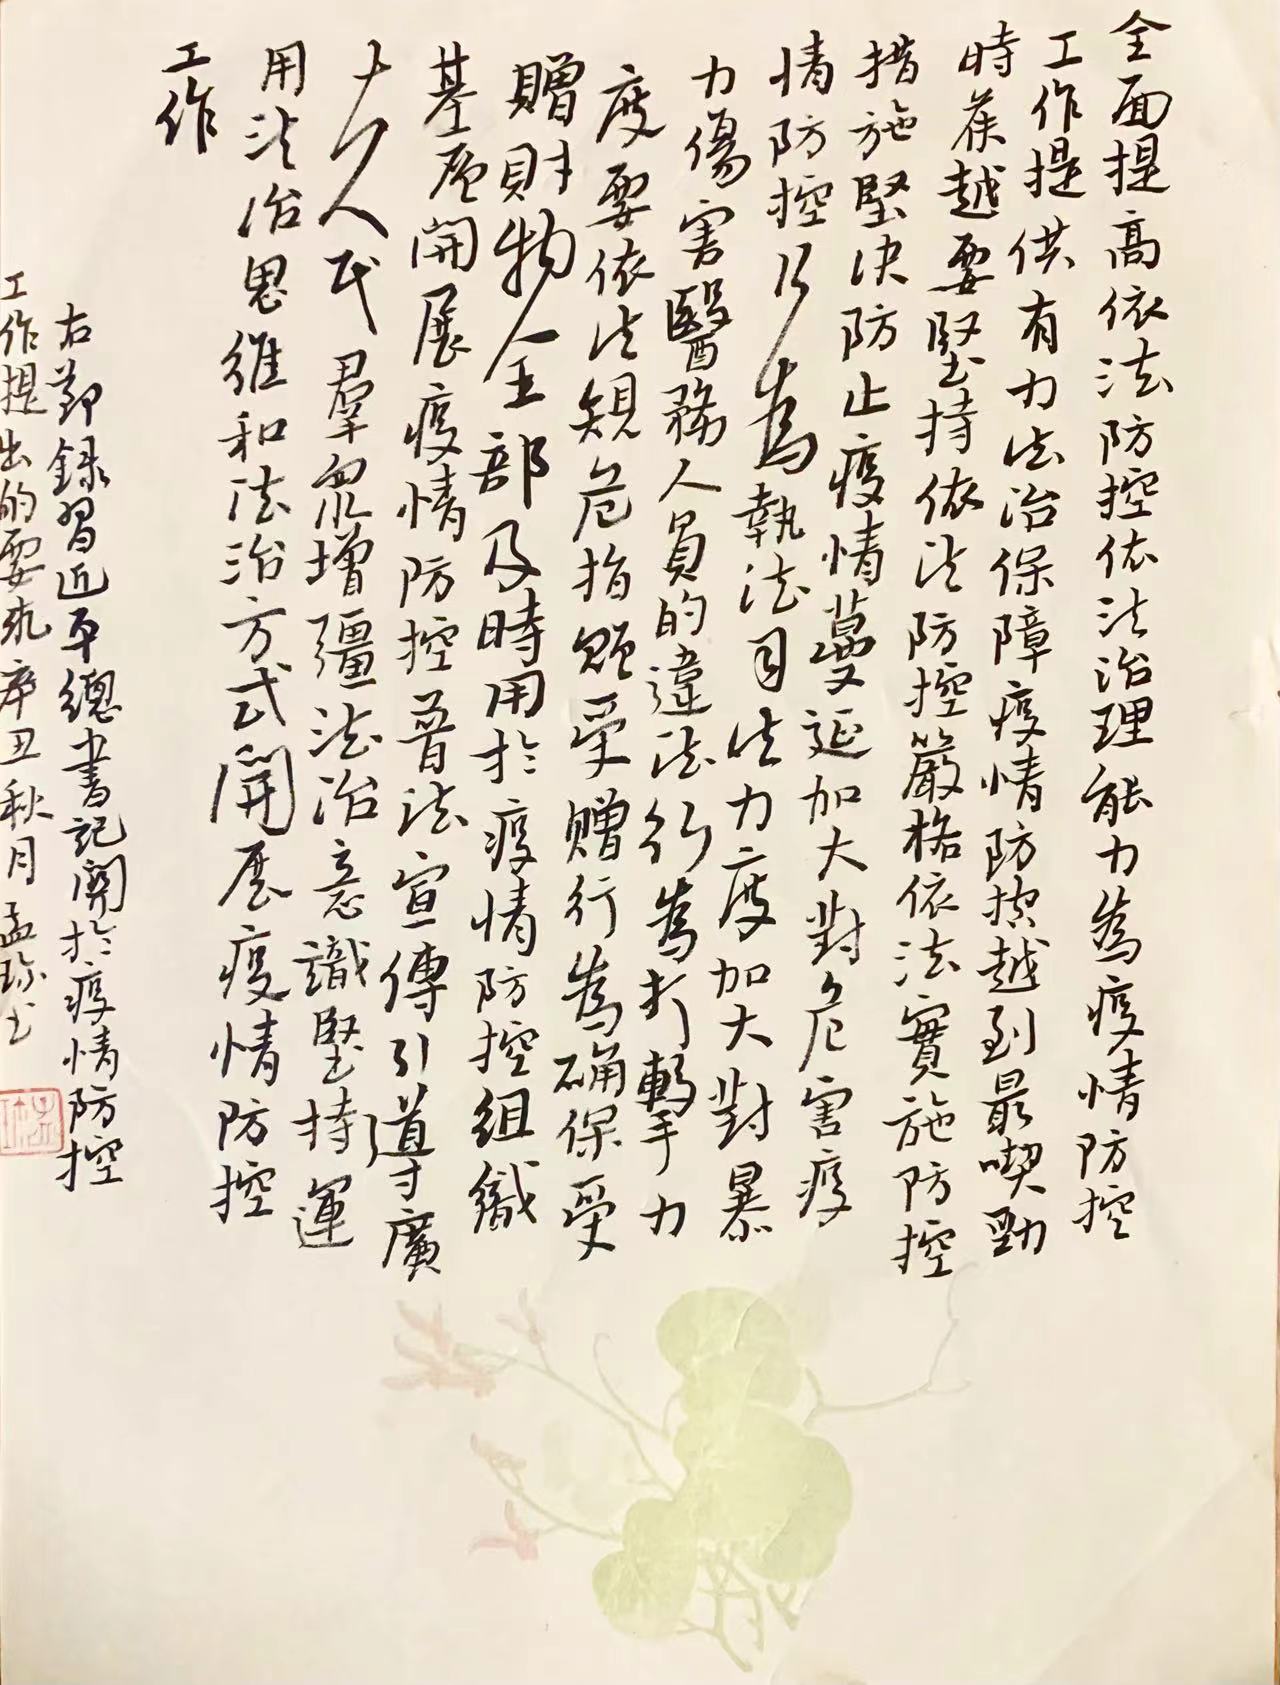 全面提高依法防控依法治理能力為疫情防控
工作提供有力法治保障疫情防控越到最喫勁
時葆越要堅持依法防控嚴格依法實施防控
措施堅決防止疫情蔓延加大對危害疫
情防控行為執法司法力度加大對暴
力傷害醫務人員的違法行為打擊力
度要依法規范捐贈受贈行為確保受
贈財物全部及時用於疫情防控組織
基層開展疫情防控普法宣傳引導廣
大人民群眾增彊法治意識堅持運
用法治思維和法治方式開展疫情防控
工作
右節錄習近平總書記關於疫情防控
工作提出的要求辛丑秋月孟珍書